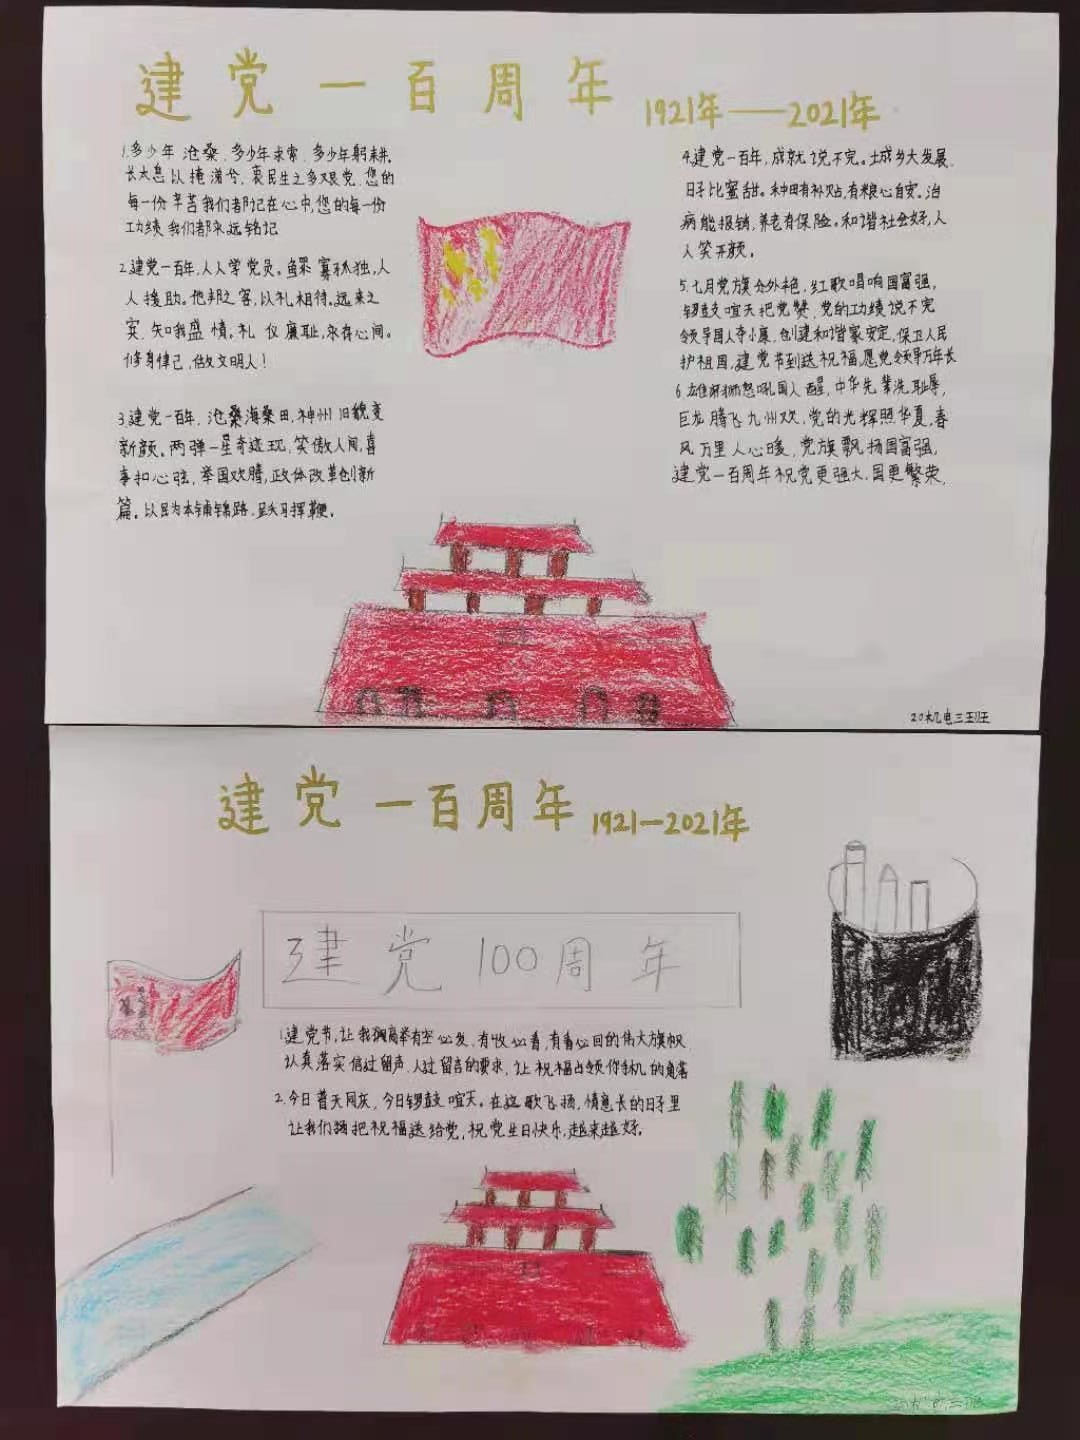 建党一百周年 1921年——2021年
1.多少年沧桑,多少年求索,多少年躬耕。
长太息以掩涕兮,哀民生之多艰党,您的
每一份辛苦我们都记在心中,您的每一份
功绩我们都永远铭记
2.建党一百年,人人学党员。鳏寡孤独,人
人援助。他邦之客,以礼相待。远来之
宾,知我盛情。礼仪廉耻,永存心间。
修身律己,做文明人!
3.建党一百年,沧桑海桑田,神州旧貌变
新颜。两弹一星奇迹现,笑傲人间,喜
事扣心弦,举国欢腾,政体改革创新
篇。以民为本铺锦路,跃马挥鞭。
4.建党一百年,成就说不完。城乡大发展,
日子比蜜甜。种田有补贴,有粮心自安。治
病能报销,养老有保险。和谐社会好,人
人笑开颜。
5.七月党旗分外艳,红歌唱响国富强,
锣鼓喧天把党赞,党的功绩说不完
领导国人夺小康,创建和谐家安定,保卫人民
护祖国,建党节到送祝福,愿党领导万年长
6.雄狮怒吼国人醒,中华先辈洗耻辱,
巨龙腾飞九州欢,党的光辉照华夏,春
风万里人心暖,党旗飘扬国富强,
建党一百周年祝党更强大,国更繁荣,
20机电三班
建党一百周年 1921—2021年
建党100周年
1.建党节,让我拥高举有空必发,有收必看,有看必回的伟大旗帜
认真落实信过留声,人过留言的要求,让祝福占领你手机的角落
2.今日普天同庆,今日锣鼓喧天。在这歌飞扬,情意长的日子里
让我们把祝福送给党,祝党生日快乐,越来越好。